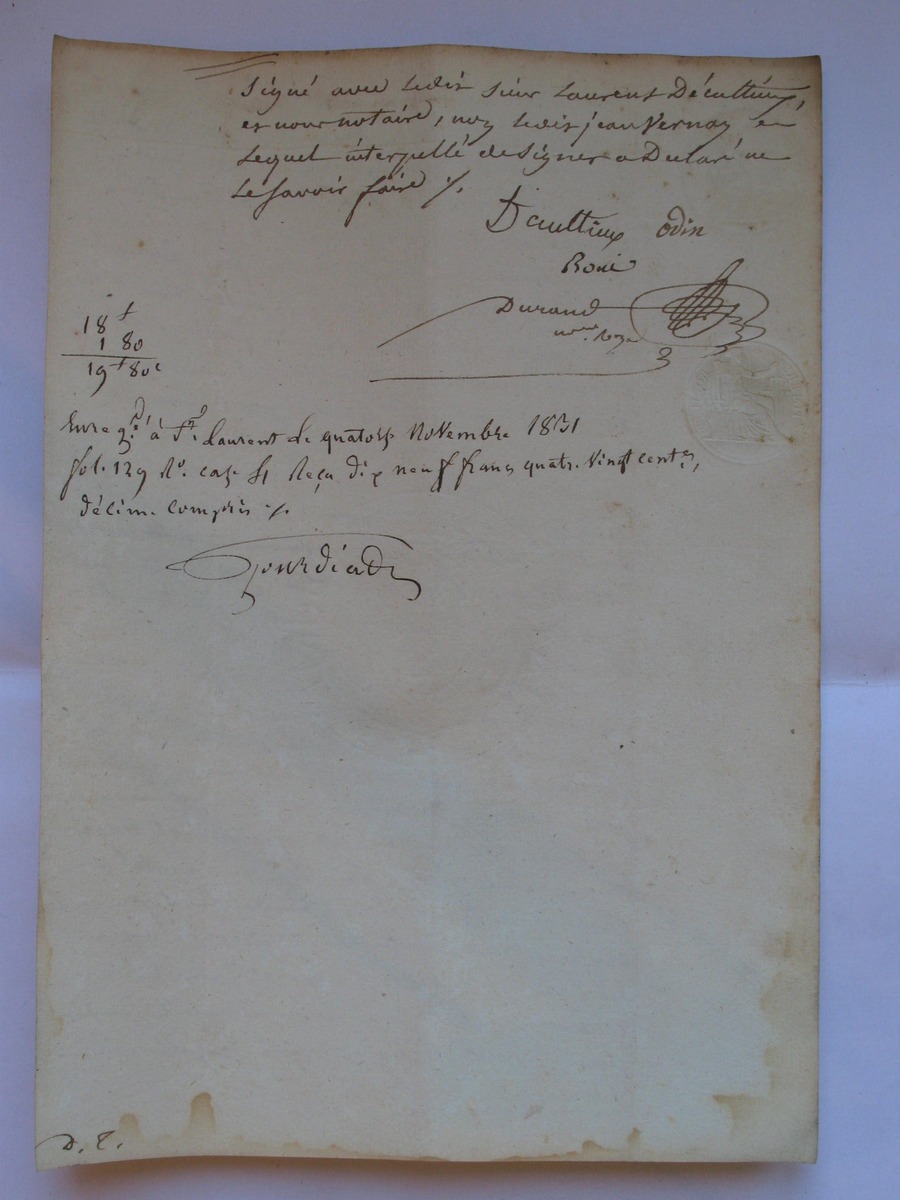 Signé avec ledit sieur Laurent Décultieux,
et nous notaire, non ledit jean Vernay en
Lequel interpellé de Signer a Déclaré ne
Le Savoir faire ⁒
Décultieux odin
Roné
Durand
18 f
1 80
19 f 80 c
Enreg.é à St. Laurent le quatorze Novembre 1831
fol. 129 Ro. case 4 Reçu dix neuf francs quatre Vingt cent.es,
décime compris ⁒
Gourdiad
D. T.